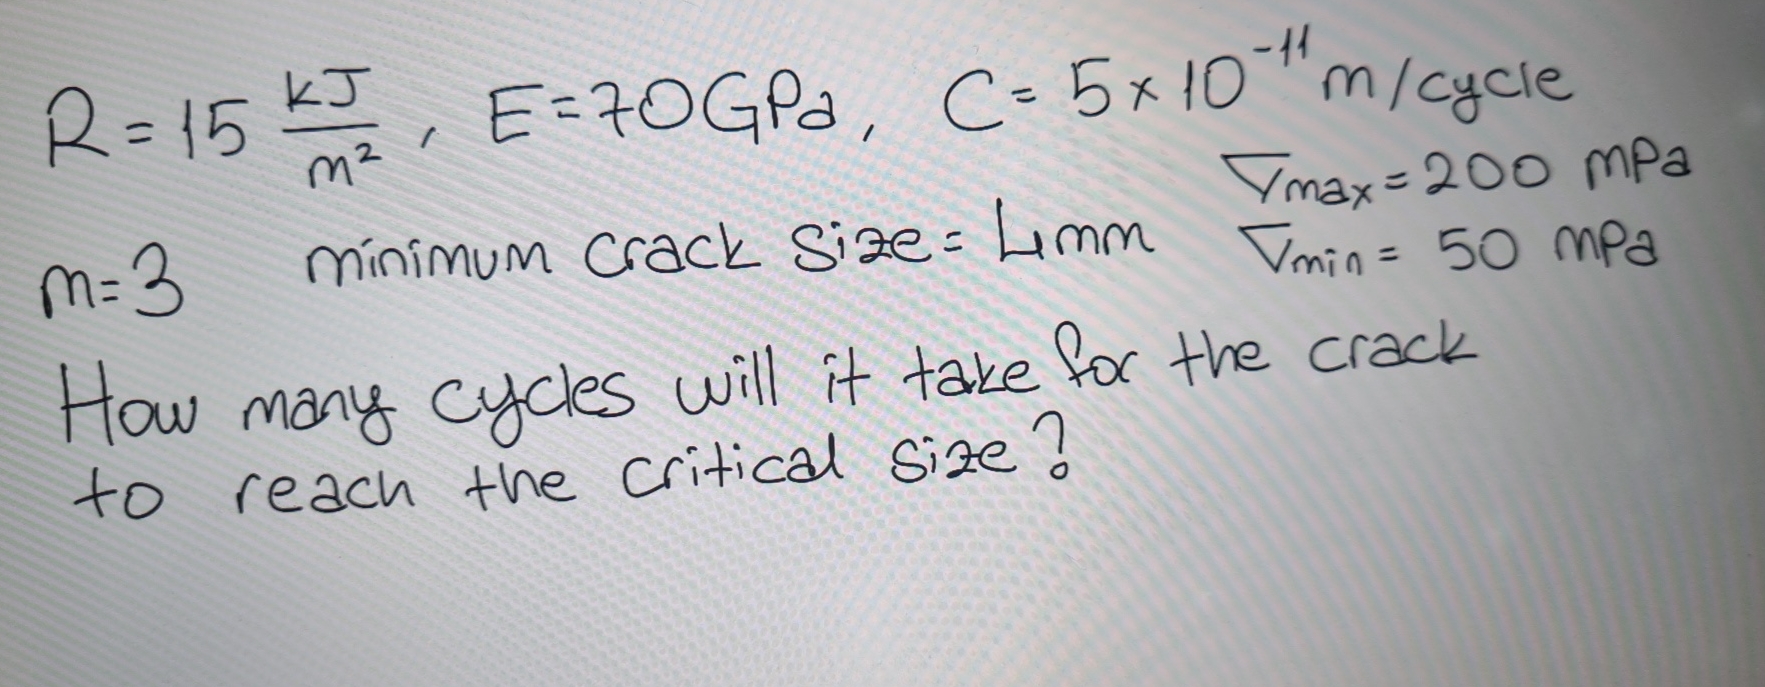 R = 15 kJ/m², E = 70 GPa, C = 5 × 10⁻¹¹ m/cycle
σmax = 200 mPa
m = 3 minimum crack size = 4 mm σmin = 50 mPa
How many cycles will it take for the crack
to reach the critical size?